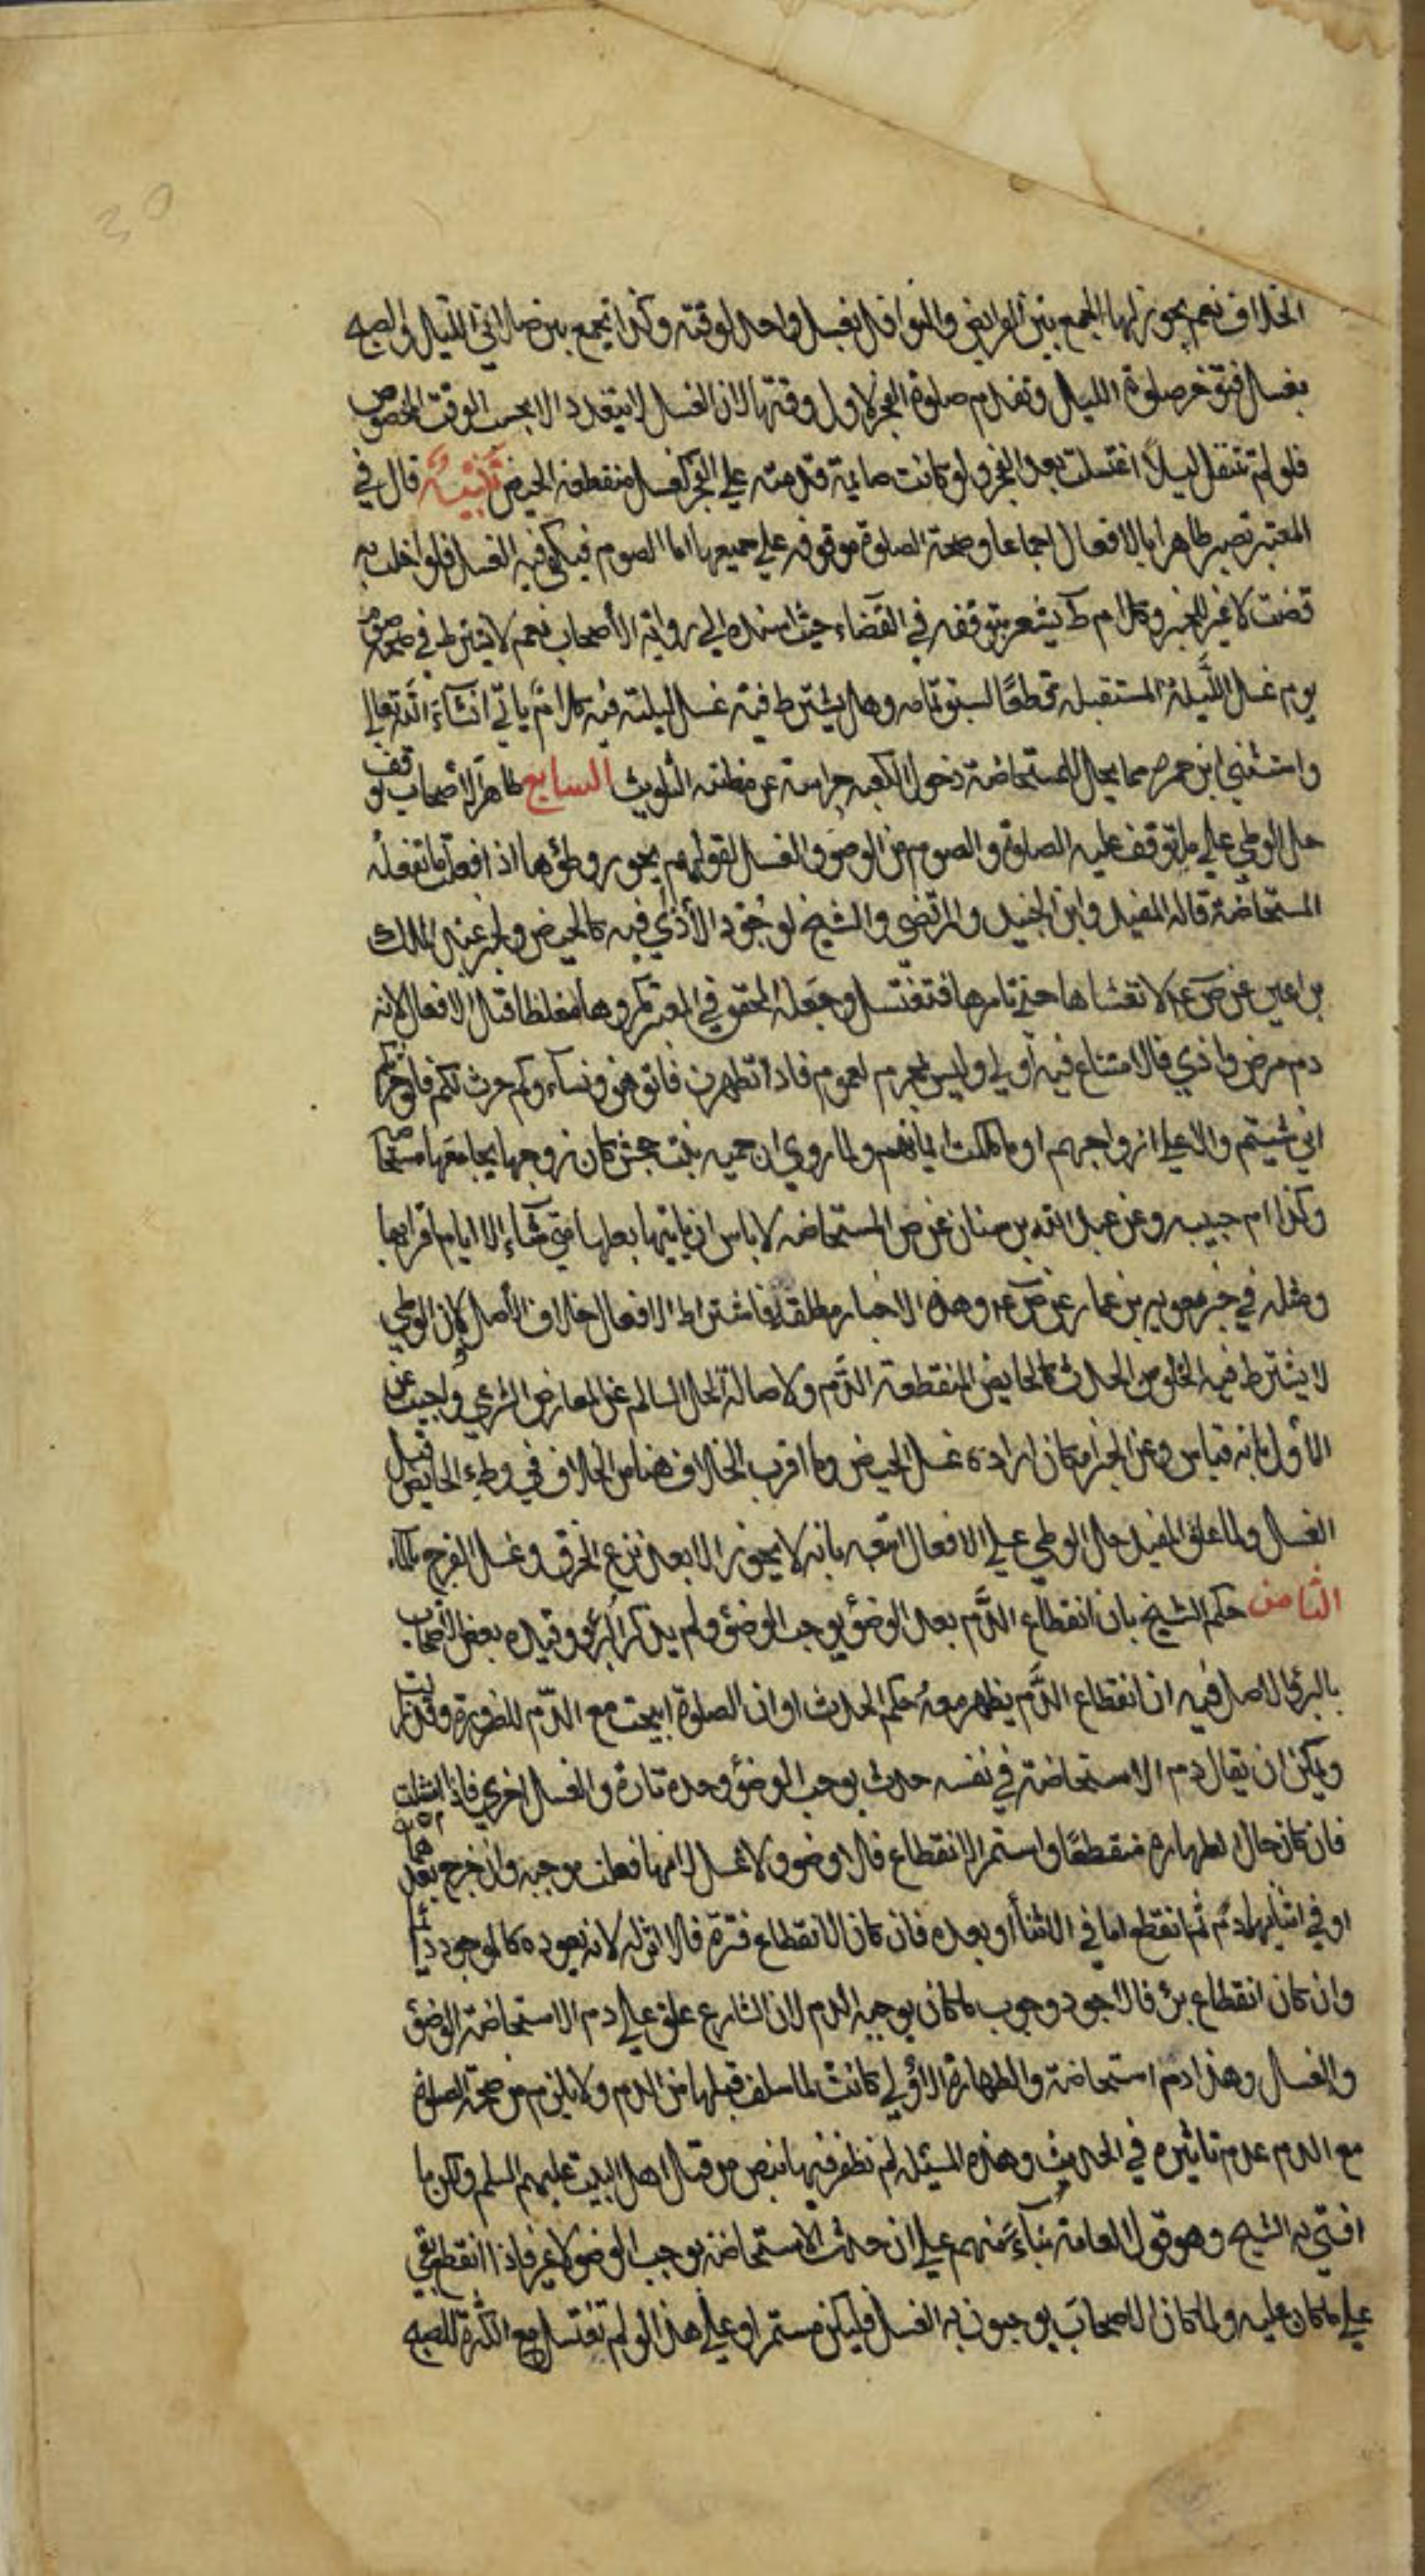 30
الخلاف نعم يجوز لها الجمع بين الفرايض والنوافل بغسل واحد لوقته وكذا تجمع بين صلاتي الليل والصبح
بغسل فتؤخر صلوة الليل وتقدم صلوة الفجر لاول وقتها لان الغسل لا يتعدد الا بحسب الوقت المخصوص
فلو لم تتنفل ليلاً اغتسلت بعد الفجر ولو كانت صايمة قدمته علي الفجر كغسل منقطعة الحيض تنبيه قال في
المعتبر تصير طاهرا بالافعال اجماعا وصحة الصلوة موقوفه علي جميعها اما الصوم فيكفي فيه الغسل فلو اخلت به
قضت لا غير للخبر وكلام ط يشعر بتوقفه في القضاء حيث اسنده الي رواية الأصحاب نعم لا يشترط في صحة صوم
يوم غسل اللَّيلة المستقبله قطعًا لسبق تمامه وهل يشترط فيه غسل ليلته فيه كلام يأتي انشآء الله تعالي
واستثني ابن حمزه مما يحل للمستحاضة دخول الكعبه حراسة عن مظنه التلويث السابع ظاهر الأصحاب توقف
حل الوطي علي ما يتوقف عليه الصلوة والصوم من الوضو والغسل لقولهم يجوز وطؤها اذا فعلت ما تفعله
المستحاضة قاله المفيد وابن الجنيد والمرتضي والشيخ لوجود الأذي فيه كالحيض ولخبر عبد الملك
بن اعين عن ص ع لا تغشاها حتي تامرها فتغتسل وجعله المحقق في المعتبر مكروها مغلظا قبل الافعال لانه
دم مرض واذي فالامتناع فيه أولي وليس بمحرم لعموم فاذا تطهرن فاتوهن ونسآءوكم حرث لكم فاتوا حرثكم
اني شيتم والا علي ازواجهم او ما ملكت ايمانهم ولما روي ان حمنه بنت جحش كان زوجها يجامعها مستحاضة
وكذا ام حبيبه وعن عبد الله بن سنان عن ص المستحاضه لا باس ان ياتيها بعلها متي شآء إلا ايام اقرايها
ومثله في خبر معويه بن عمار عن ص ع وهذه الاخبار مطلقة فاشتراط الافعال خلاف الأصل ولان الوطي
لا يشترط فيه الخلو من الحدث كالحايض المنقطعة الدَّم ولاصالة الحل السالم عن المعارض الشرعي واجيب عن
الأول بانه قياس وعن الخبر بامكان ارادة غسل الحيض وما اقرب الخلاف هنا من الخلاف في وطء الحايض قبل
الغسل ولما علق المفيد حل الوطي علي الافعال اتبعه بانه لا يجوز الا بعد نزع الخرق وغسل الفرج بالمآء
الثامن حكم الشيخ بان انقطاع الدَّم بعد الوضؤ يوجب الوضؤ ولم يذكر البرؤ وقيده بعض الأصحاب
بالبرؤ الاصل فيه ان انقطاع الدَّم يظهر معهُ حكم الحدث او ان الصلوة ابيحت مع الدّم للضرورة وقد زالت
ويمكن ان يقال دم الاستحاضة في نفسه حدث يوجب الوضؤ وحده تارة والغسل اخري فاذا امتثلت
فان كان حال الطهارة منقطعًا واستمر الانقطاع فلا وضو ولا غسل لانها فعلت موجبه وان خرج بعدهما
او في اثنايهما دم ثم انقطع اما في الاثنا أو بعده فان كان الانقطاع فترة فلا اثر له لانه بعوده كالموجود دايماً
وان كان انقطاع برء فالاجود وجوب ما كان يوجبه الدم لان الشارع علق علي دم الاستحاضة الوضؤ
والغسل وهذا دم استحاضة والطهارة الأولي كانت لما سلف قبلها من الدم ولا يلزم من صحة الصلوة
مع الدم عدم تاثيره في الحدث وهذه المسئله لم نظفر فيها بنص من قبل اهل البيت عليهم السلم ولكن ما
افتي به الشيخ وهو قول العامة بنآءً منهم علي ان حدث الاستحاضة يوجب الوضو لا غير فاذا انقطع بقي
علي ما كان عليه ولما كان الاصحاب يوجبون به الغسل فليكن مستمرا وعلي هذا لو لم تغتسل مع الكثرة للصبح